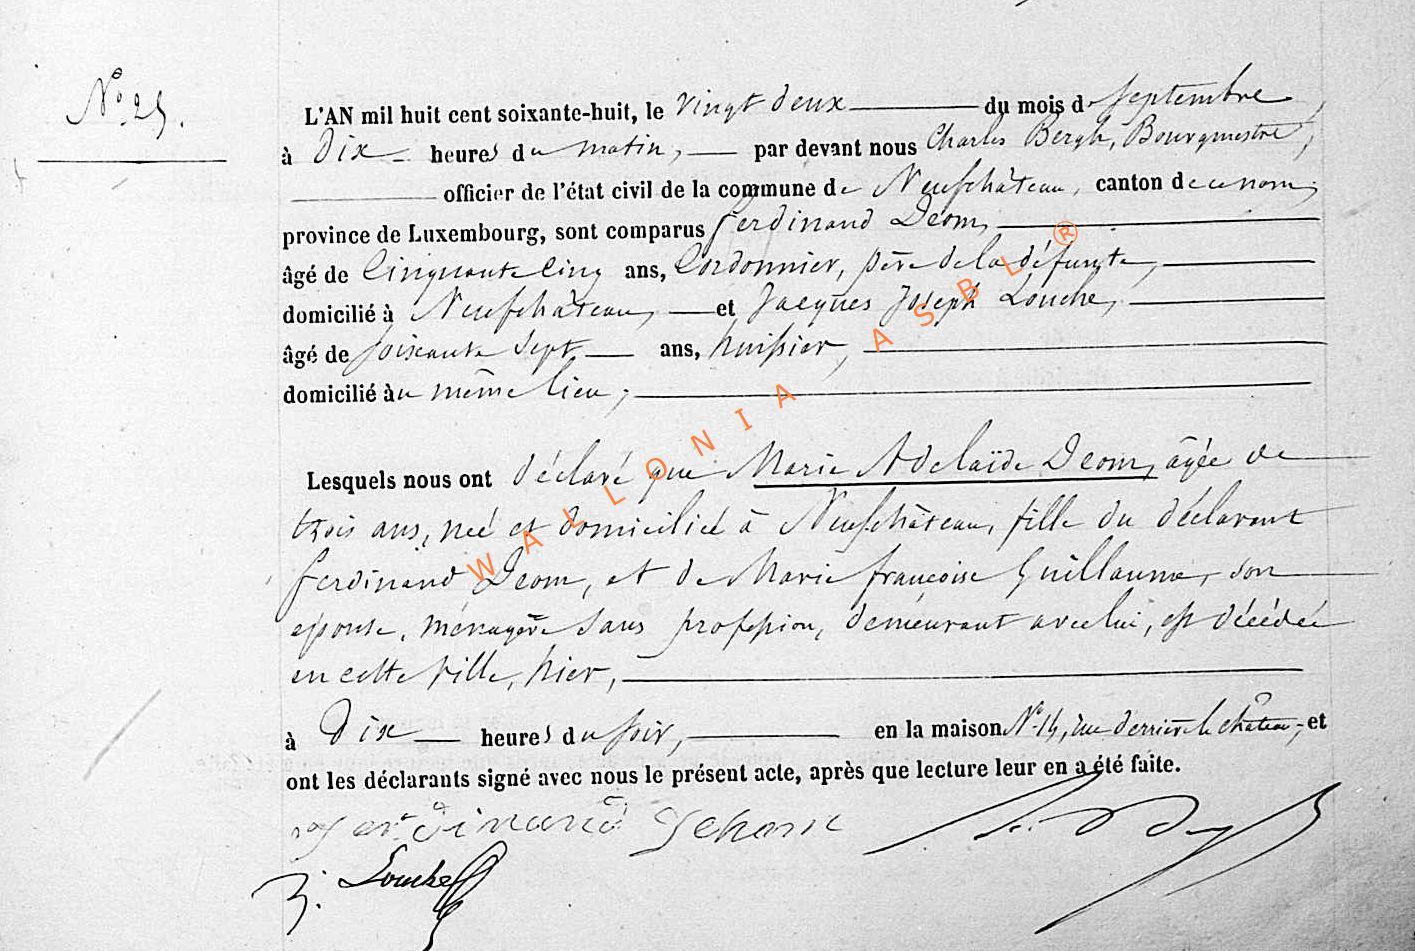 N° 25.
L'AN mil huit cent soixante-huit, le vingt deux du mois de Septembre,
à Dix heures du matin, par devant nous Charles Bergh, Bourgmestre,
officier de l'état civil de la commune de Neufchâteau, canton de ce nom,
province de Luxembourg, sont comparus Ferdinand Deom,
âgé de Cinquante Cinq ans, Cordonnier, père de la défunte,
domicilié à Neufchâteau, et Jacques Joseph Louche,
âgé de soixante sept ans, huissier,
domicilié au même lieu,
Lesquels nous ont déclaré que Marie Adelaïde Deom, âgée de
trois ans, neé et domiciliée à Neufchâteau, fille du déclarant
Ferdinand Deom, et de Marie françoise Guillaume, son
epouse, ménagère sans profession, demeurant avec lui, est décédée
en cette ville, hier,
à Dix heures du soir, en la maison N° 14, rue derrière le château, et
ont les déclarants signé avec nous le présent acte, après que lecture leur en a été faite.
ferdinand
J. Louche
WALLONIA ASBL ®